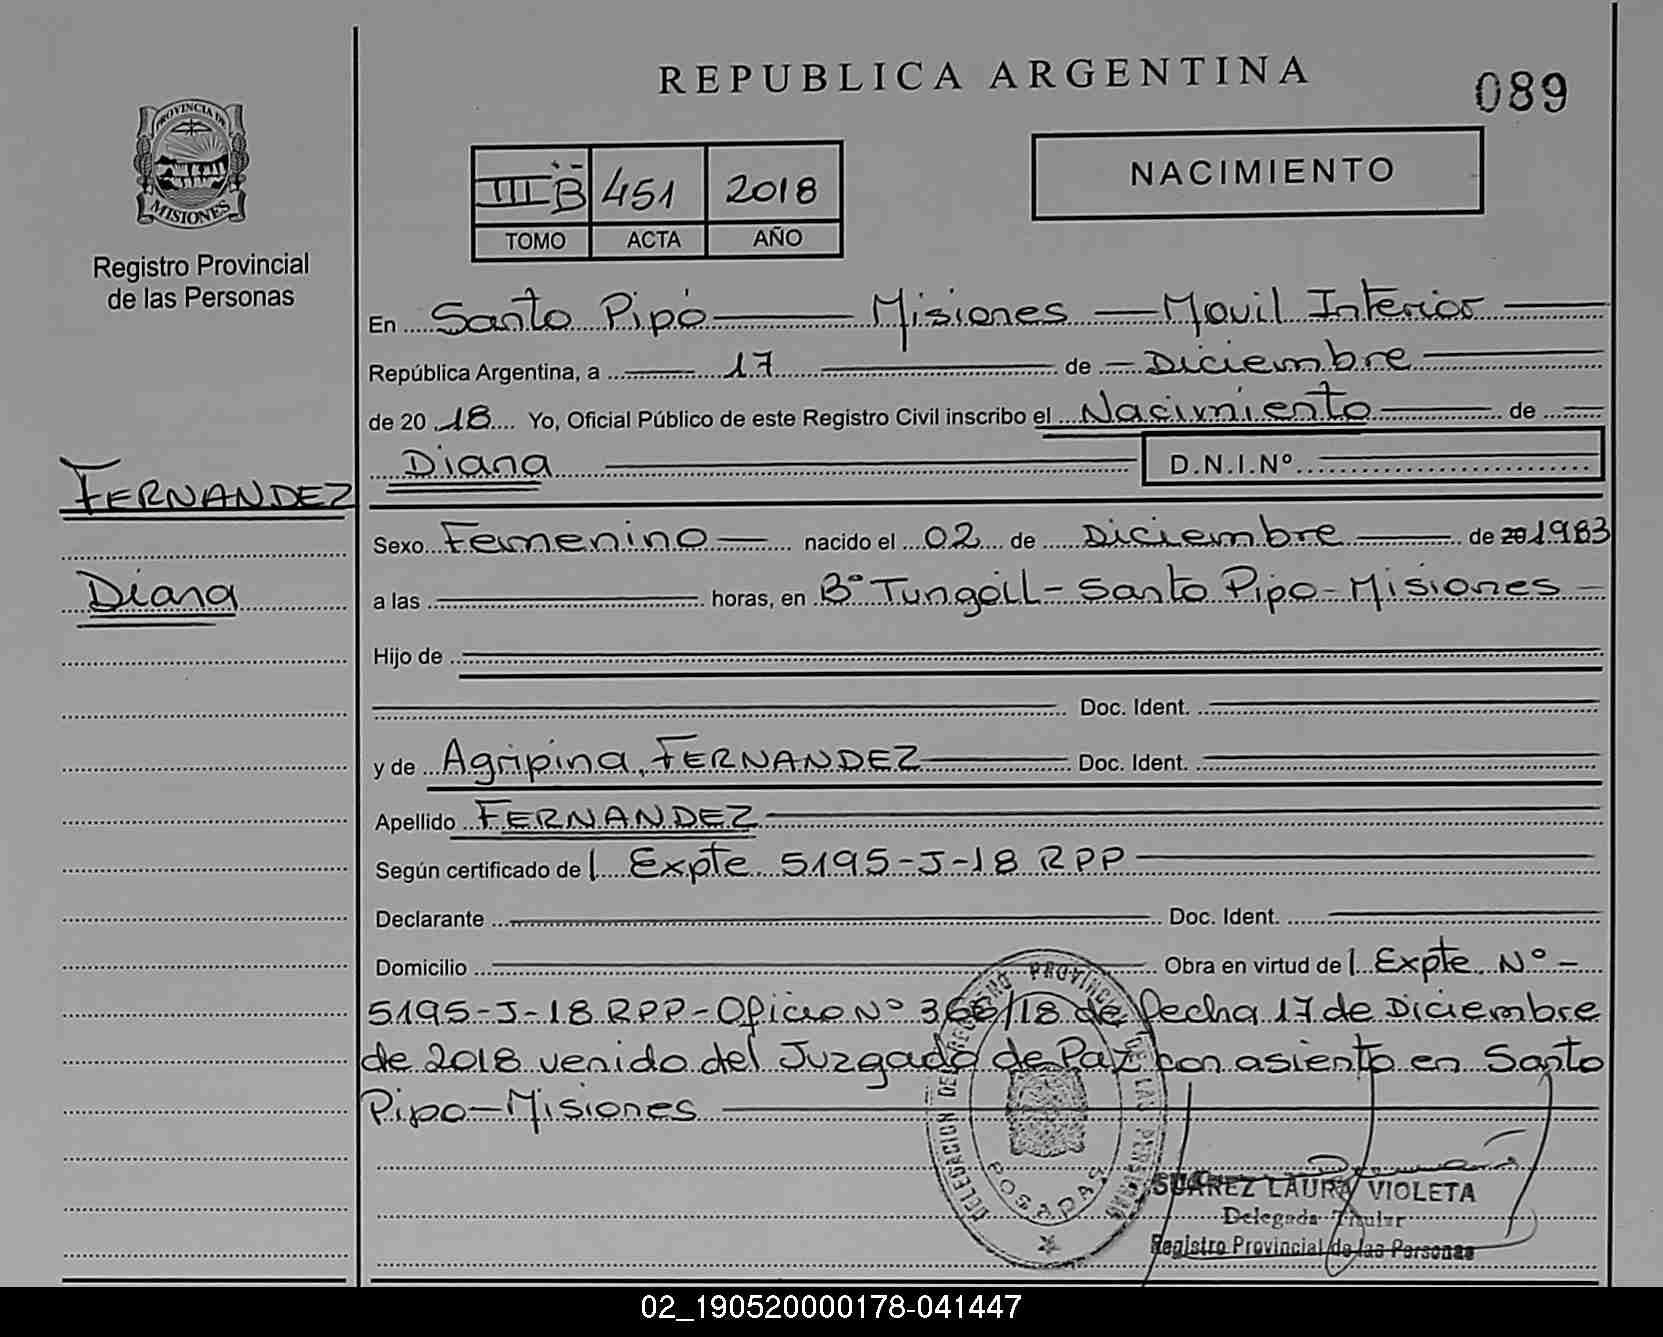 REPUBLICA ARGENTINA
089
PROVINCIA DE
MISIONES
Registro Provincial
de las Personas
III B 451 2018
TOMO ACTA AÑO
NACIMIENTO
En Santo Pipó Misiones Movil Interior
República Argentina, a 17 de Diciembre
de 20 18 Yo, Oficial Público de este Registro Civil inscribo el Nacimiento de
Diana D.N.I.Nº
FERNANDEZ
Diana
Sexo Femenino nacido el 02 de Diciembre de 20 1983
a las horas, en Bº Tungoil - Santo Pipo - Misiones
Hijo de
Doc. Ident.
y de Agripina FERNANDEZ Doc. Ident.
Apellido FERNANDEZ
Según certificado de Expte 5195-J-18 RPP
Declarante Doc. Ident.
Domicilio Obra en virtud de Expte Nº
5195-J-18 RPP - Oficio Nº /18 de fecha 17 de Diciembre
de 2018 venido del Juzgado de Paz con asiento en Santo
Pipo - Misiones
DELEGACION DEL REGISTRO PROVINCIAL DE LAS PERSONAS
POSADAS
SUAREZ LAURA VIOLETA
Delegada Titular
Registro Provincial de las Personas
02_190520000178-041447